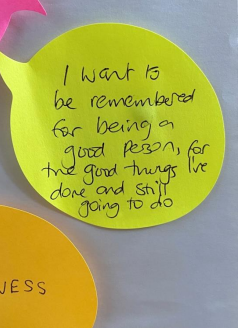 I want to
be remembered
for being a
good person, for
the good things I've
done and still
going to do
NESS